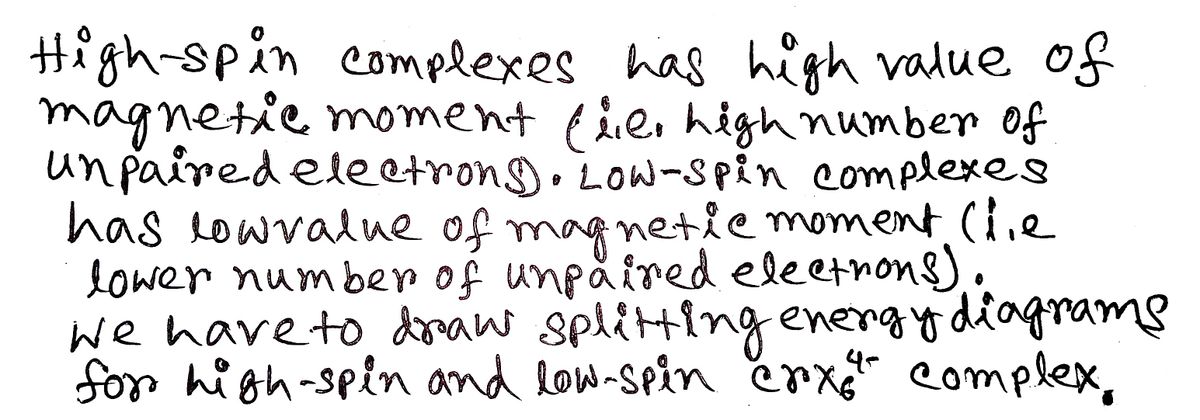 High-spin complexes has high value of
magnetic moment (i.e. high number of
unpaired electrons). Low-spin complexes
has low value of magnetic moment (i.e
lower number of unpaired electrons).
We have to draw splitting energy diagrams
for high-spin and low-spin CrX₆⁴⁻ complex.